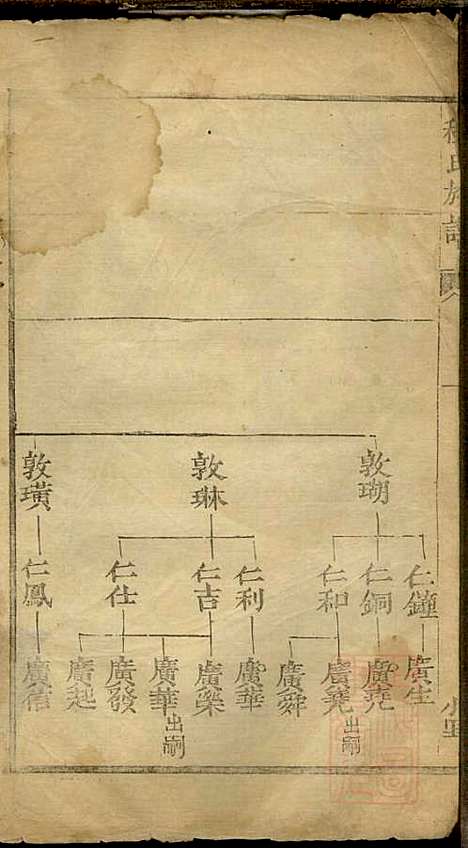 程氏族譜
敦瑚
敦琳
敦璜
仁鐘
仁銅
仁和
仁利
仁吉
仁仕
仁鳳
廣生
廣堯
廣堯出嗣
廣舜
廣華
廣榮
廣華出嗣
廣發
廣起
廣信